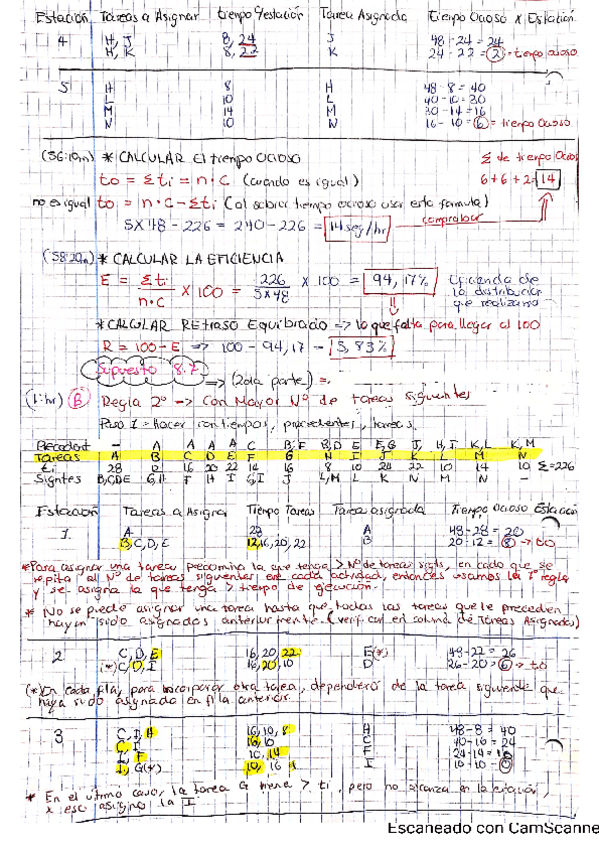 Estación Tareas a Asignar tiempo x estación Tarea Asignada Tiempo Ocioso x Estación
4 H, J 8, 24 J 48 - 24 = 24
H, K 8, 22 K 24 - 22 = 2 = tiempo ocioso
5 H 8 H 48 - 8 = 40
L 10 L 40 - 10 = 30
M 14 M 30 - 14 = 16
N 10 N 16 - 10 = 6 = tiempo ocioso
(56:10m) * CALCULAR El tiempo Ocioso Σ de tiempo Ocioso
to = Σti = n·c (cuando es igual) 6 + 6 + 2 = 14
no es igual to = n·c - Σti (al sobrar tiempo ocioso usar esta formula)
5 x 48 - 226 = 240 - 226 = 14 seg/hr comprobar
* CALCULAR LA EFICIENCIA
E = Σti / n·c x 100 = 226 / 5x48 x 100 = 94,17% Eficiencia de la distribución que realizamos
* CALCULAR REtraso Equilibrado => lo que falta para llegar al 100
R = 100 - E => 100 - 94,17 = 5,83%
Supuesto 8.7 => (2da parte) =.
(1:hr) B Regla 2º -> Con Mayor Nº de tareas siguientes
Paso 1 = Hacer con tiempos, precedentes, tareas.
Precedent - A A A A C B,F B,D E E,G J, H,I K,L K,M
Tareas A B C D E F G H I J K L M N
ti 28 12 16 20 22 14 16 8 10 24 22 10 14 10 Σ=226
Signtes B,C,D,E G,H F H I G,I J L,M L K N M N -
Estación Tareas a Asignar Tiempo Tareas Tarea asignada Tiempo Ocioso Estación
1 A 28 A 48 - 28 = 20
B, C, D, E 12,16,20,22 B 20 - 12 = 8 -> to
* Para asignar una tarea predomina la que tenga > Nº de tareas sigts, en cado que se
repita el Nº de tareas siguientes en cada actividad, entonces usamos la 1ª regla
y se asigna la que tenga > tiempo de ejecución.
* No se puede asignar una tarea hasta que todas las tareas que le preceden
hayan sido asignadas anteriormente. (verificar en columna de tareas Asignadas)
2 C, D, E 16, 20, 22 E(*) 48 - 22 = 26
(*)C, D, I 16, 20, 10 D 26 - 20 = 6 -> to
(*) En cada fila, para incorporar otra tarea, dependerá de la tarea siguiente que
haya sido asignada en fila anterior.
3 C, I, H 16, 10, 8 H 48 - 8 = 40
C, I 16, 10 C 40 - 16 = 24
I, F 10, 14 F 24 - 14 = 10
I, G(*) 10, 16 I 10 - 10 = 0
* En el último caso, la tarea G tiene > ti, pero no alcanza en la estación,
x eso asignas la I.
Escaneado con CamScanne